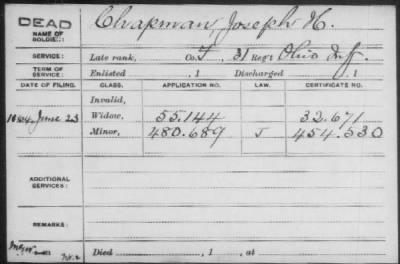 DEAD Chapman, Joseph H.
NAME OF SOLDIER:
SERVICE: Late rank, Co. I, 31 Reg't Ohio Inf.
TERM OF SERVICE: Enlisted , 1 Discharged , 1
DATE OF FILING. CLASS. APPLICATION NO. LAW. CERTIFICATE NO.
Invalid,
1864, June 23 Widow, 55.144 32.671
Minor, 480.689 J 454.530
ADDITIONAL SERVICES:
REMARKS:
Died , 1 , at